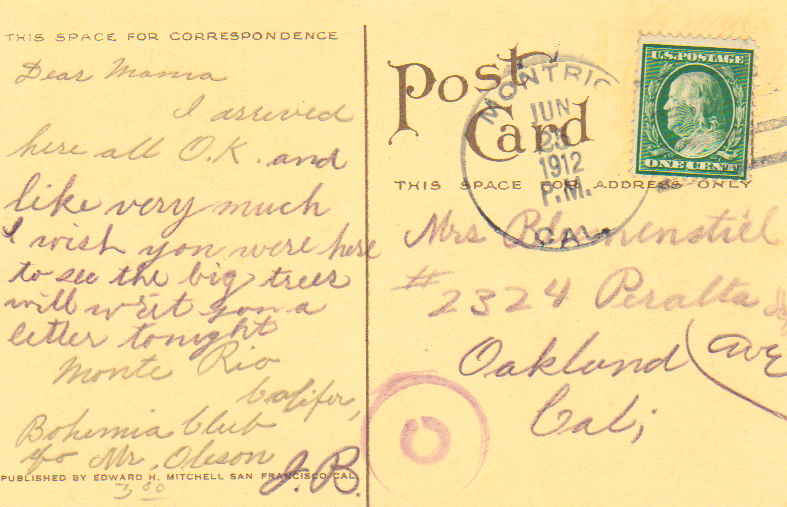 THIS SPACE FOR CORRESPONDENCE
Dear Mama
I arrived
here all O.K. and
like very much
I wish you were here
to see the big trees
will writ you a
letter tonight
Monte Rio
Califor,
Bohemia Club
c/o Mr. Oleson
J.B.
PUBLISHED BY EDWARD H. MITCHELL SAN FRANCISCO CAL.
Post Card
MONTRIO
JUN
1912
P.M.
CAL.
U.S. POSTAGE
ONE CENT
THIS SPACE FOR ADDRESS ONLY
Mrs Blumenstiel
# 2324 Peralta
Ave
Oakland
Cal;